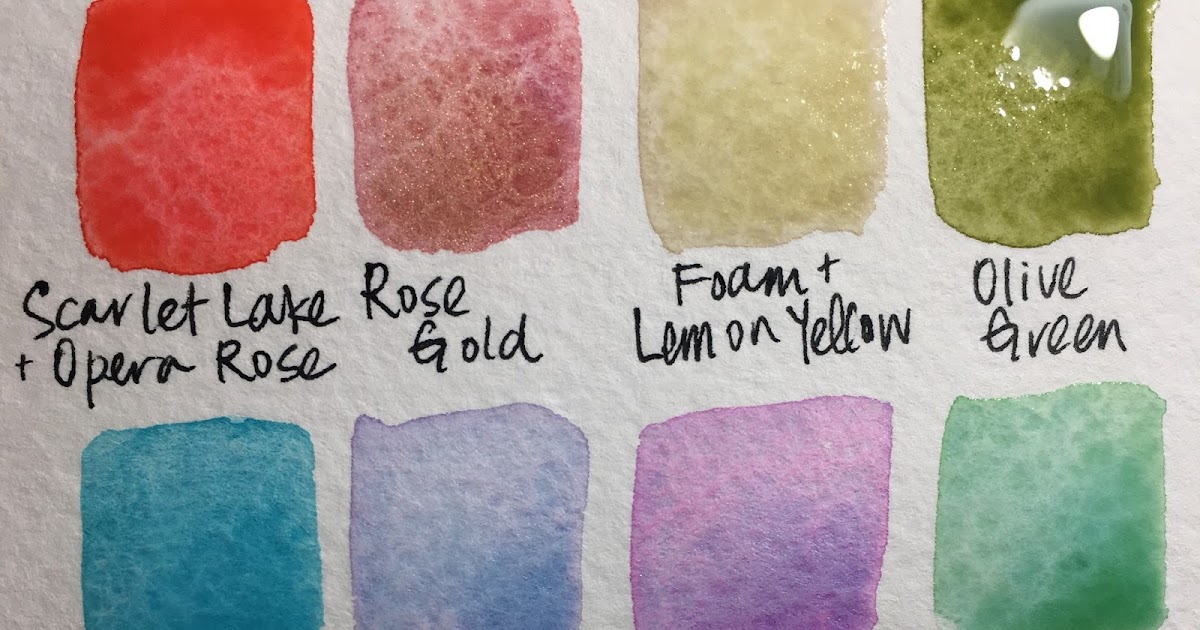 Scarlet Lake
+ Opera Rose
Rose
Gold
Foam +
Lemon Yellow
Olive
Green